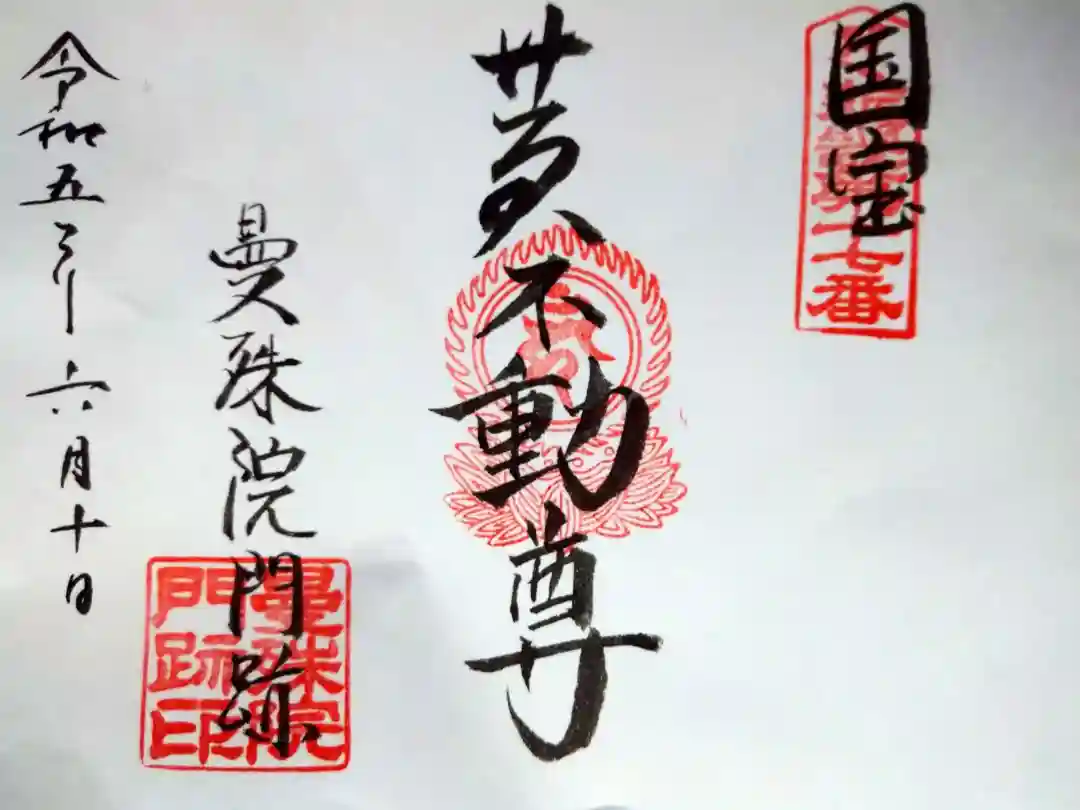 国宝
七番
黄不動尊
曼殊院門跡
曼殊院
門跡印
令和五年六月十日